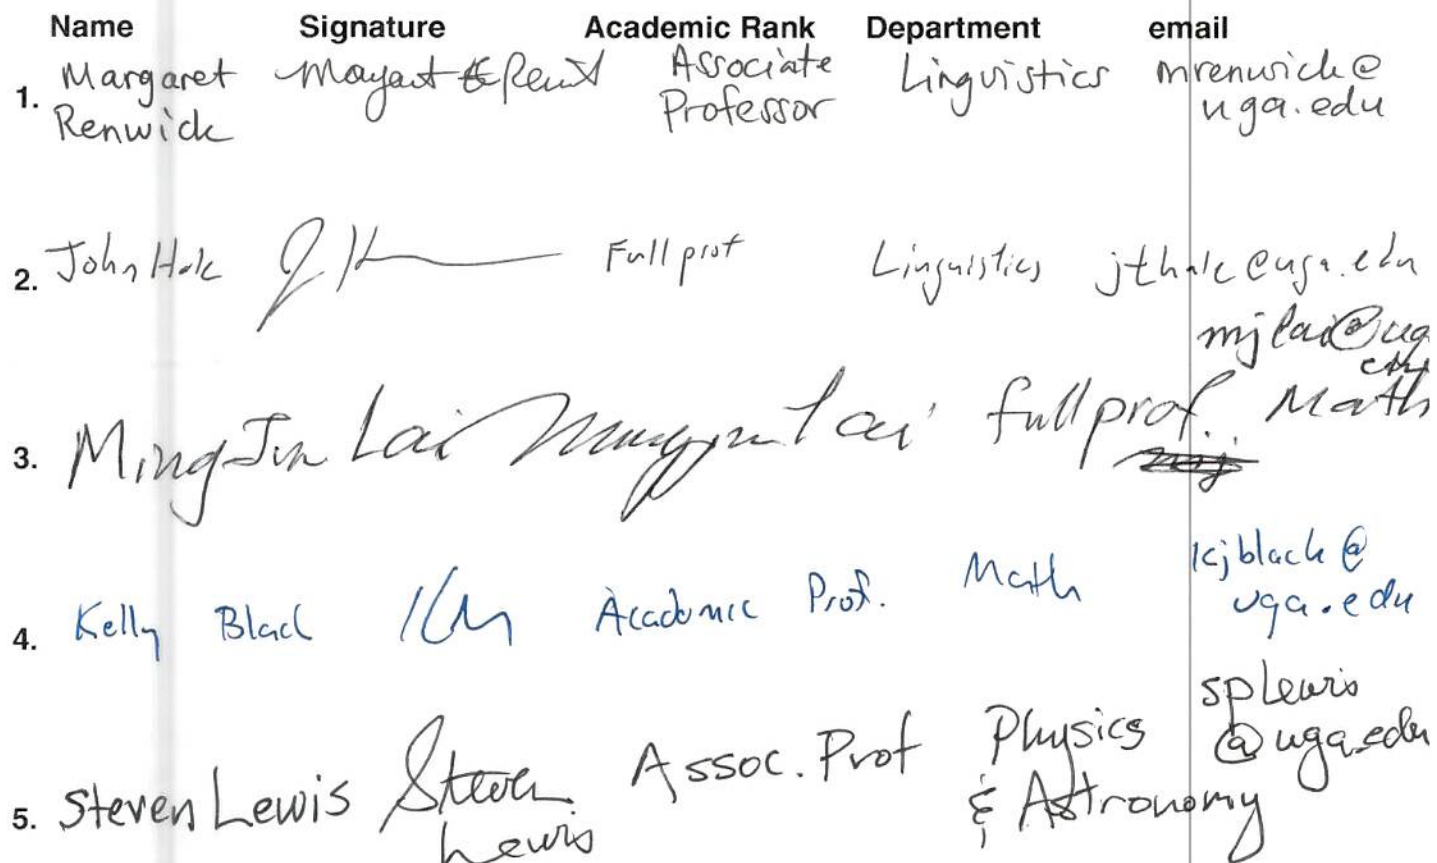 Name Signature Academic Rank Department email
1. Margaret Renwick Associate Professor Linguistics mrenwick@uga.edu
2. John Hale Full prof Linguistics jthale@uga.edu
mjlai@ug
3. MingJun Lai full prof. Math
4. Kelly Black Academic Prof. Math kjblack@uga.edu
5. Steven Lewis Steven Lewis Assoc. Prof Physics & Astronomy splewis@uga.edu